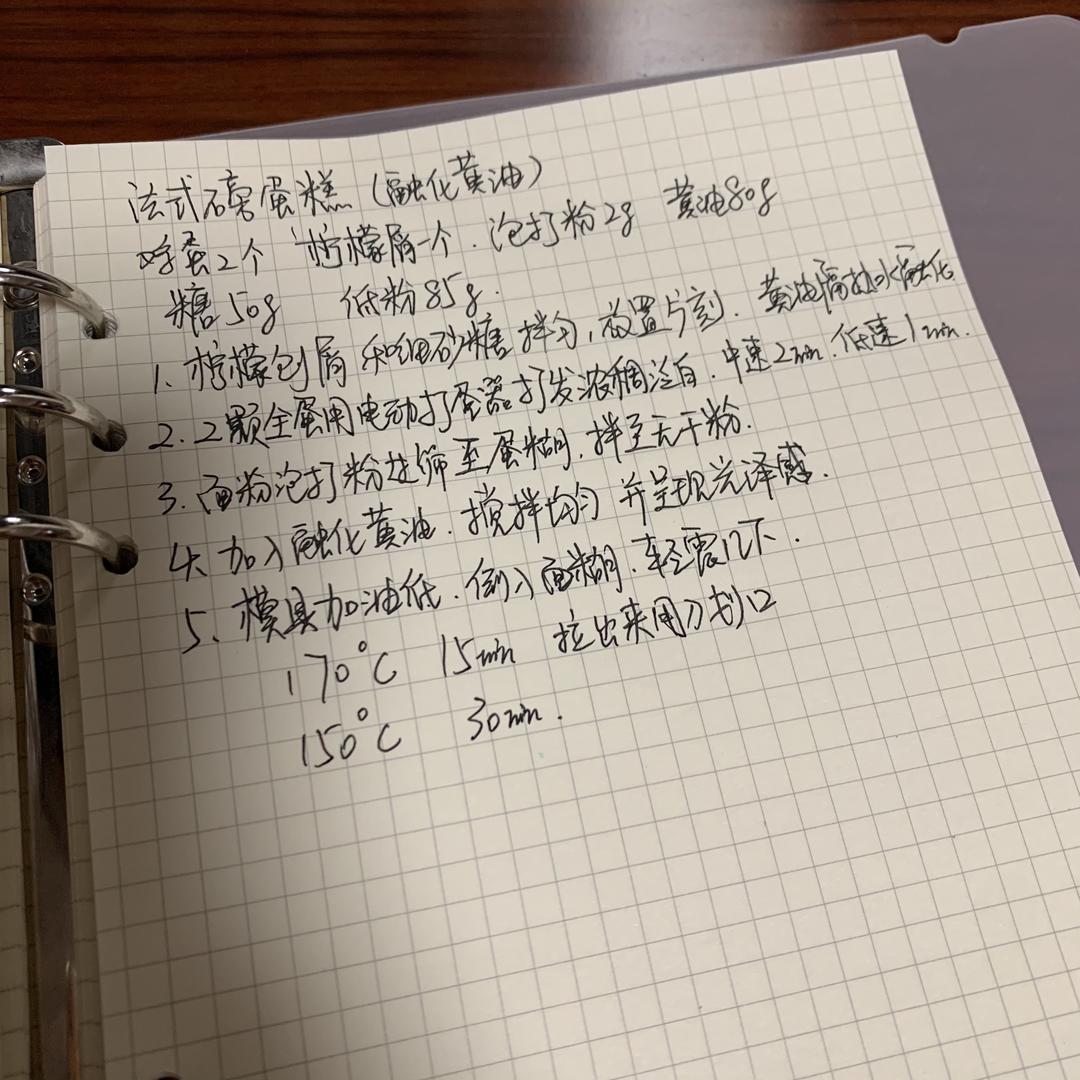 法式磅蛋糕(融化黄油)
鸡蛋2个 柠檬屑一个. 泡打粉2g 黄油80g
糖50g 低粉85g.
1、柠檬刨屑和细砂糖拌匀,放置片刻. 黄油隔热水融化
2. 2颗全蛋用电动打蛋器打发浓稠泛白. 中速2min. 低速1min.
3. 面粉泡打粉过筛至蛋糊. 拌至无干粉.
4、加入融化黄油. 搅拌均匀 并呈现光泽感.
5、模具加油纸. 倒入面糊. 轻震几下.
170°C 15min 拉出来用刀划口
150°C 30min.